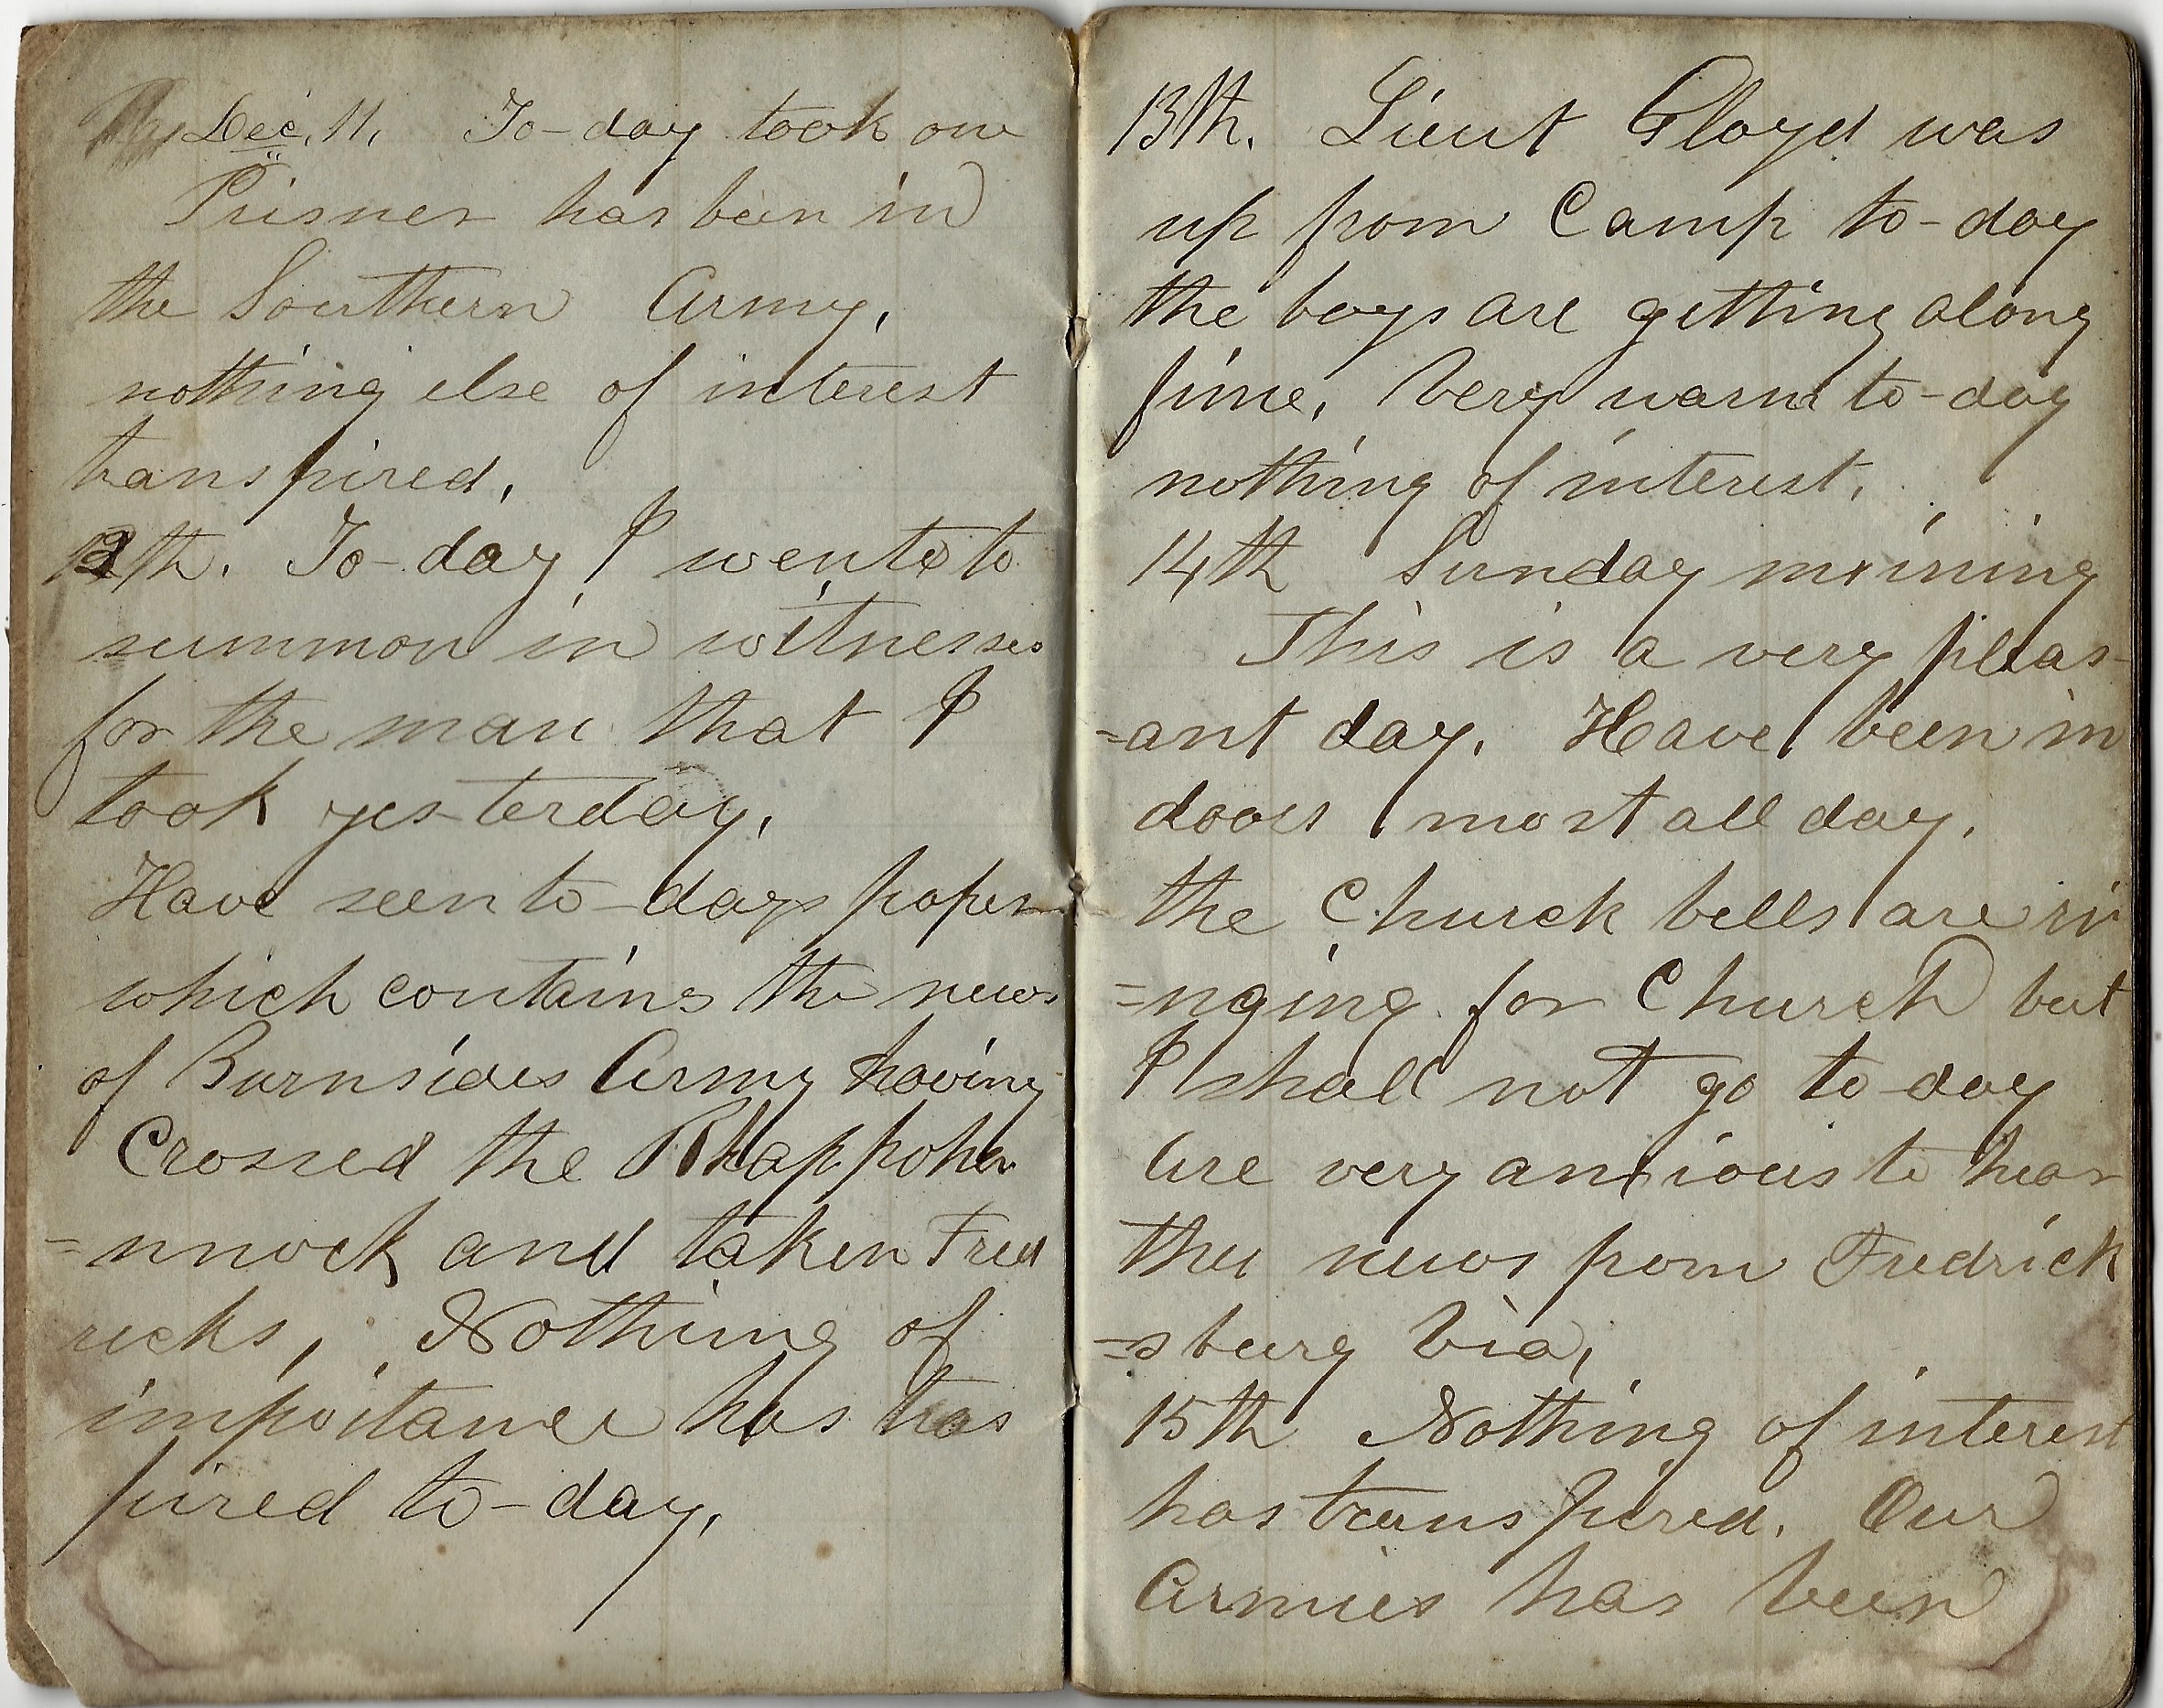 Dec. 11. To-day took one
Prisner has been in
the Southern Army,
nothing else of interest
transpired,
12th. To-day I went to to
summon in witnesses
for the man that I
took yesterday,
Have seen to-days paper
which contains the news
of Burnsides Army having
Crossed the Rhappoha
=nnock and taken Fred
ricks, Nothing of
importance has tras
pired to-day,
13th. Lieut Floyd was
up from Camp to-day
the boys are getting along
fine, Very warm to-day
nothing of interest,
14th Sunday morining
This is a very pleas-
=ant day. Have been in
doors most all day.
the Church bells are ri
=nging for Church but
I shall not go to-day
Are very anxious to hear
the news from Fredrick
=sburg Via,
15th Nothing of interest
has transpired. Our
Armies has been